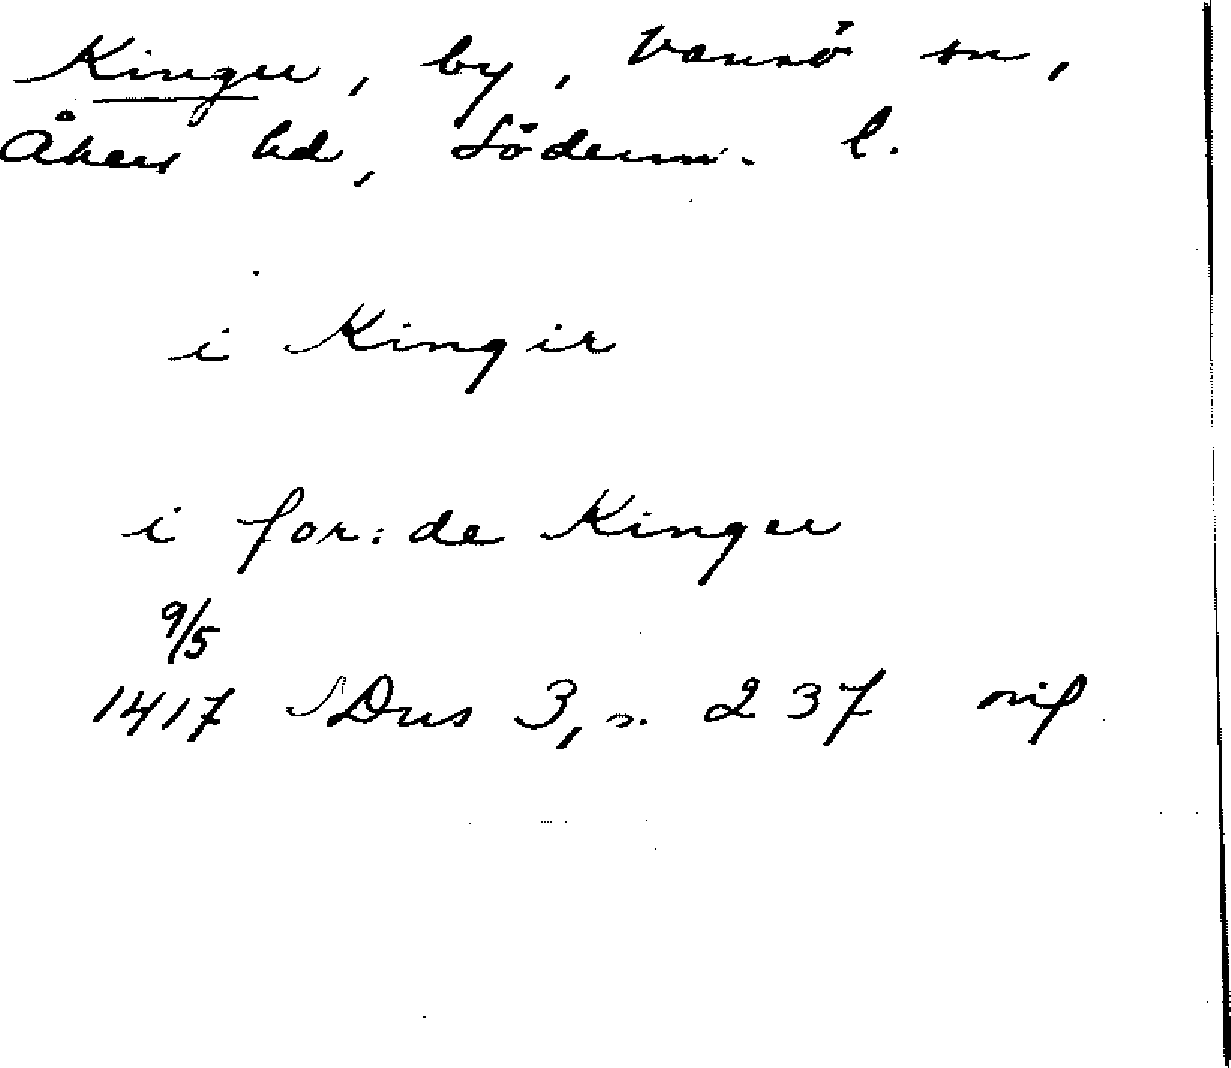 Kinger, by, Vansö sn,
Åkers hd, Söderm. l.
i Kingir
i for:de Kinger
9/5
1417 SDns 3, s. 237 orig